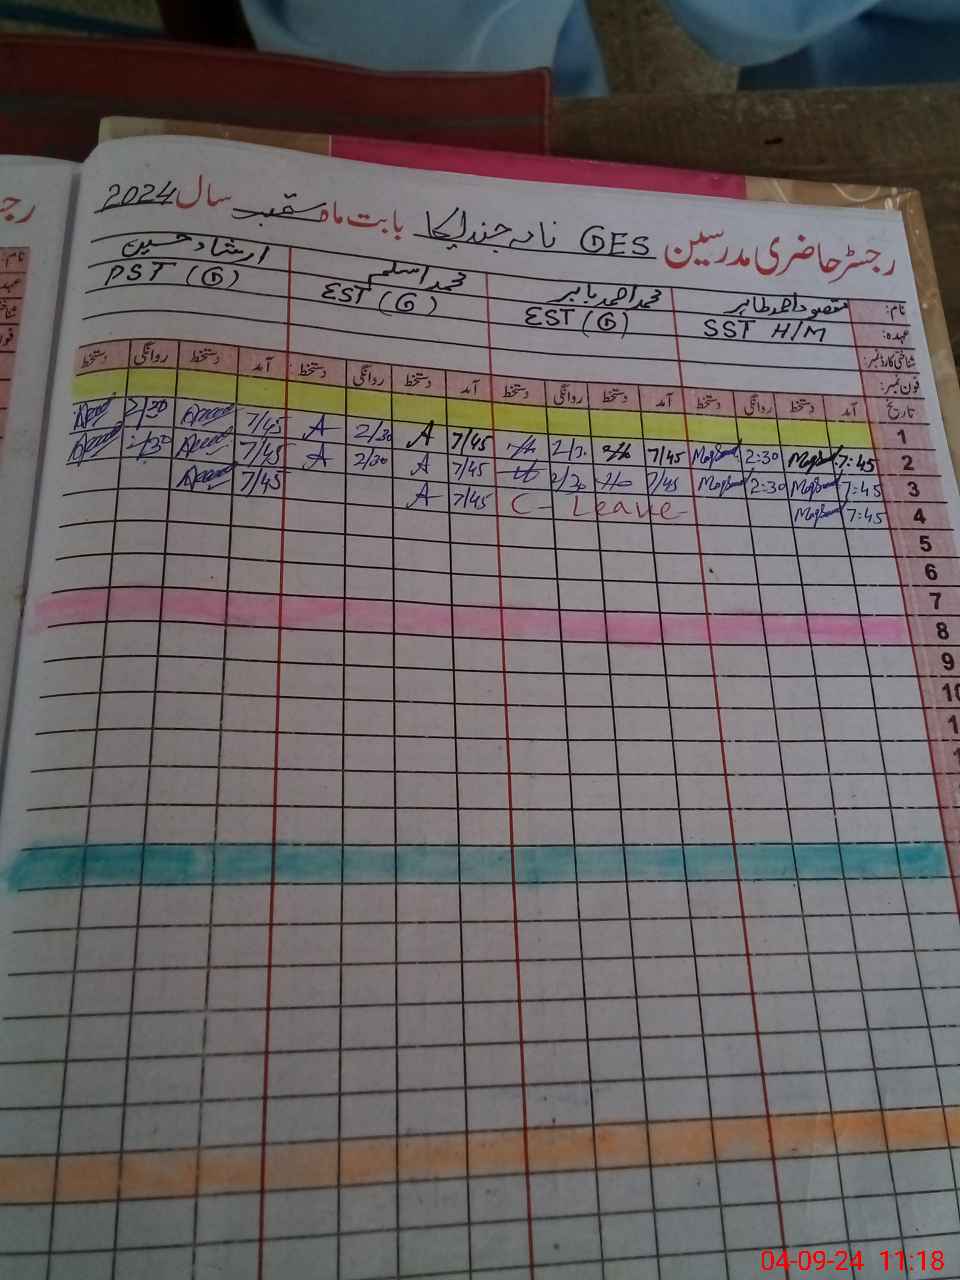 رجسٹر حاضری مدرسین GES نادہ جندایکا بابت ماہ ستمبر سال 2024
نام: مقصود احمد طاہر محمد احمد بابر محمد اسلم ارشاد حسین
عہدہ: SST H/M EST (G) EST (G) PST (G)
شناختی کارڈ نمبر:
فون نمبر:
تاریخ آمد دستخط روانگی دستخط آمد دستخط روانگی دستخط آمد دستخط روانگی دستخط آمد دستخط روانگی دستخط
1
2 7:45 2:30 7/45 2/30 7/45 A 2/30 A 7/45 2/30
3 7:45 2:30 7/45 2/30 7/45 A 2/30 A 7/45
4 7:45 C- Leave- 7/45 A 7/45
5
6
7
8
9
10
04-09-24 11:18